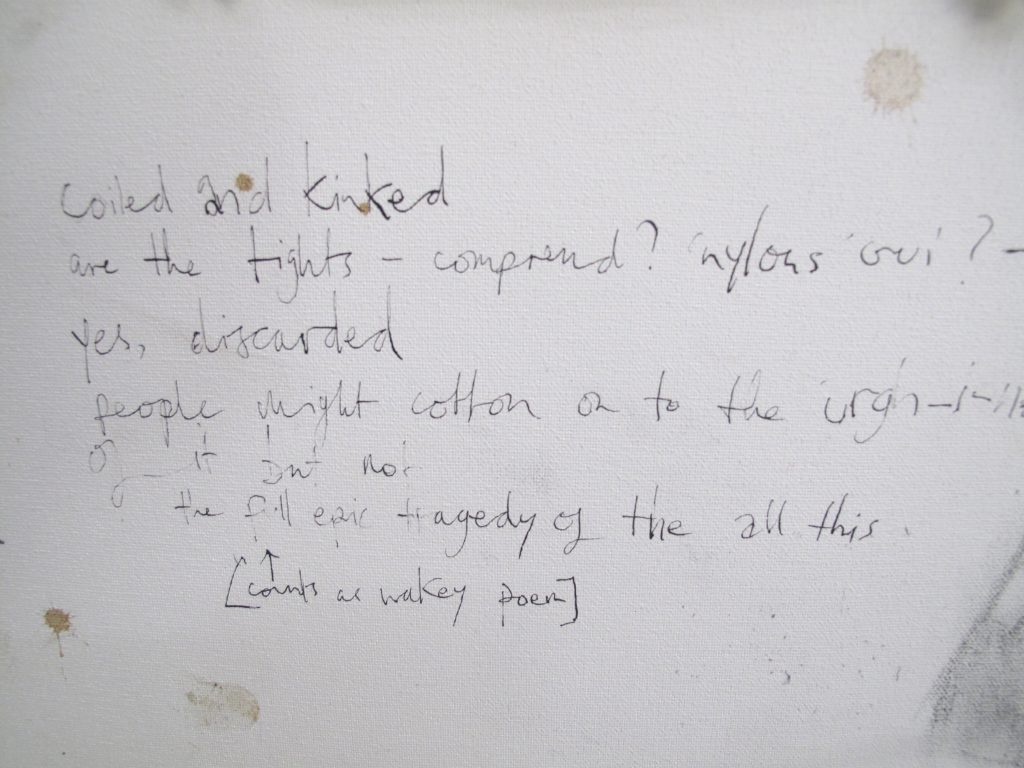 coiled and kinked
are the tights - comprend? 'nylons' oui? -
yes, discarded
people might cotton on to the
of it but not
the full epic tragedy of the all this.
[counts as wakey poem]